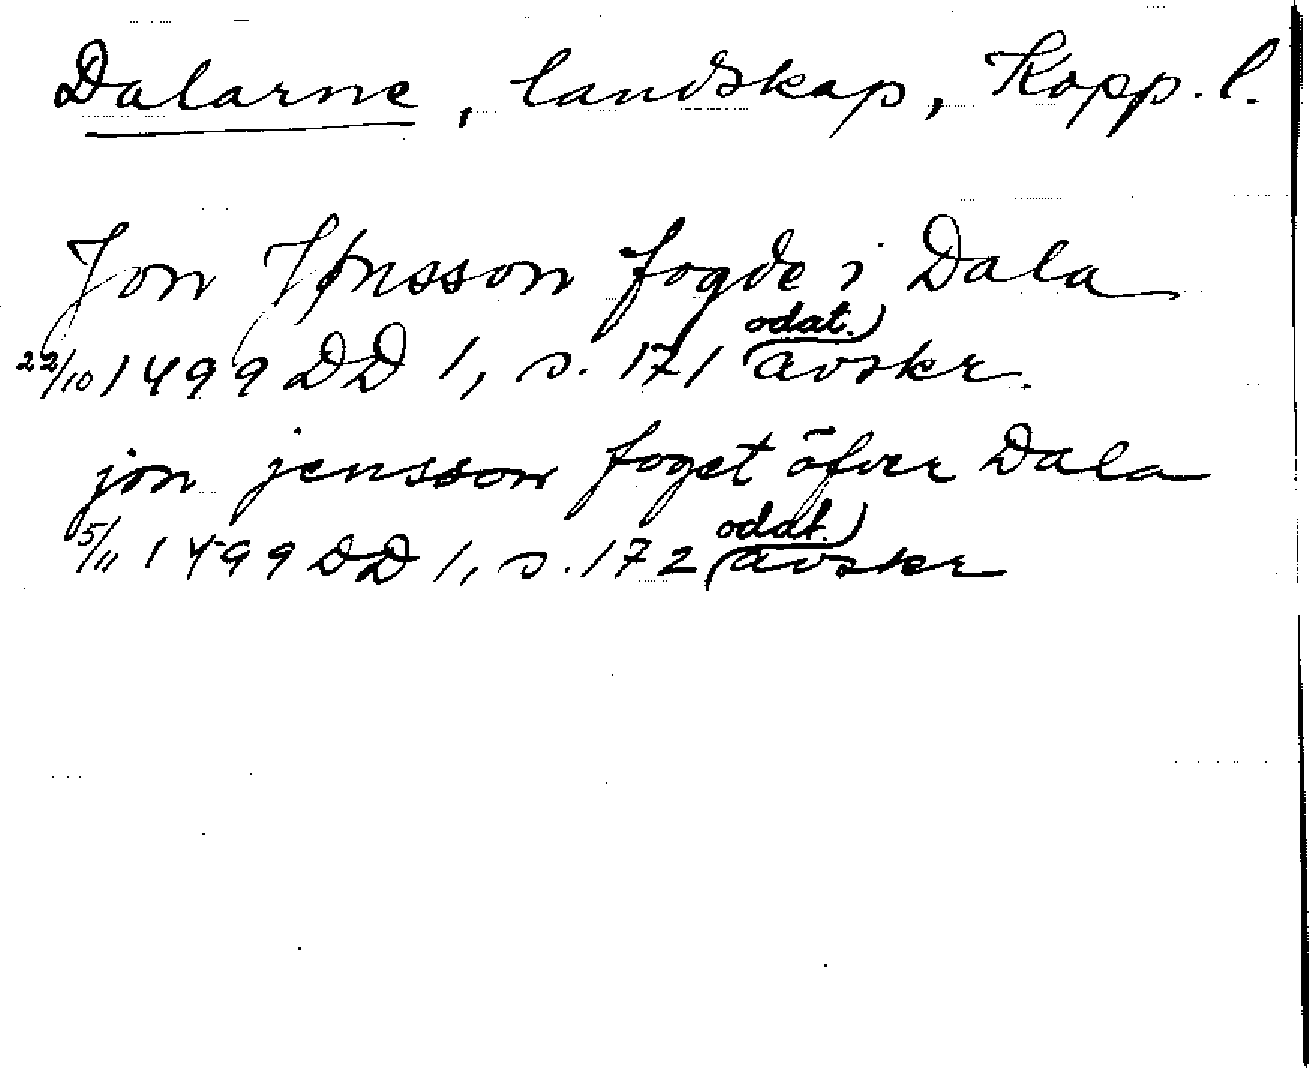 Dalarne, landskap, Kopp. l.
Jon Jønsson fogde i Dala
22/10 1499 DD 1, s. 171 (odat.) avskr.
jon jensson foget öfver Dala
5/11 1499 DD 1, s. 172 (odat.) avskr